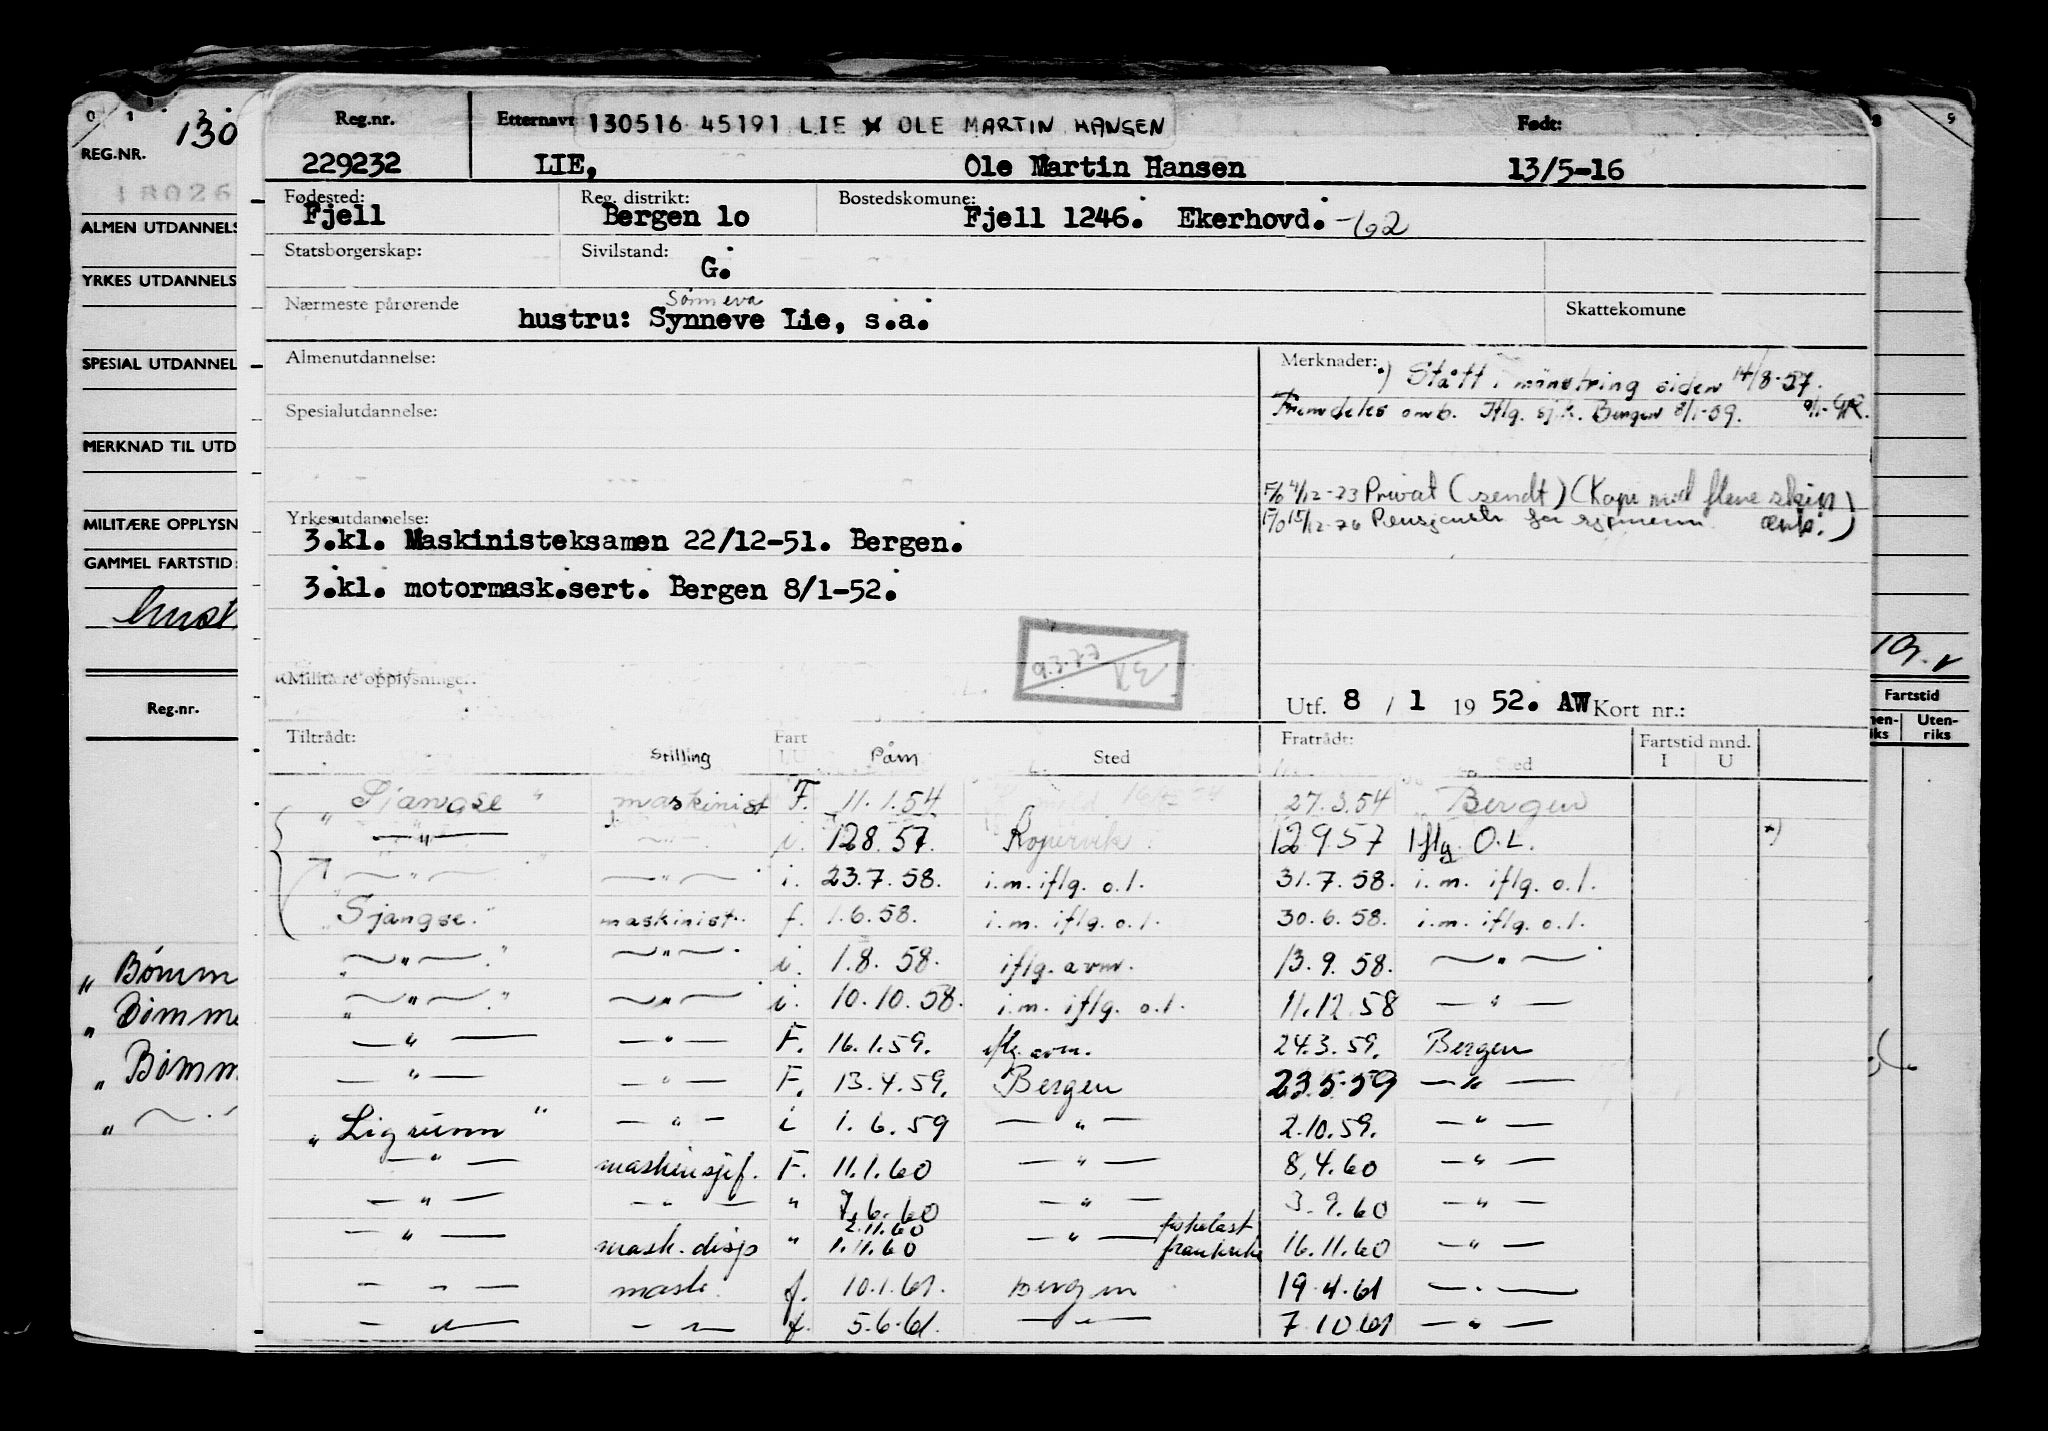 0 1 2
130
REG.NR.
18026
ALMEN UTDANNELS
YRKES UTDANNELS
SPESIAL UTDANNEL
MERKNAD TIL UTD
MILITÆRE OPPLYSN
GAMMEL FARTSTID:
Reg.nr.
" Bømm
" Bømme
" Bømm
" — . —
Reg.nr. Etternavn 130516 45191 LIE OLE MARTIN HANSEN Født:
229232 LIE, Ole Martin Hansen 13/5-16
Fødested: Reg. distrikt: Bostedskomune:
Fjell Bergen 1o Fjell 1246. Ekerhovd. -62
Statsborgerskap: Sivilstand: G.
Nærmeste pårørende Sønneva Skattekomune
hustru: Synneve Lie, s.a.
Almenutdannelse: Merknader: •) Stått i mønstring siden 14/8-57.
Fremdeles omb. Iflg. sj.k. Bergen 8/1-59.
Spesialutdannelse:
4/12-73 Privat (sendt) (Kopi med flere skip)
15/12-76 Pensjonstr for sjømenn
Yrkesutdannelse:
3.kl. Maskinisteksamen 22/12-51. Bergen.
3.kl. motormask.sert. Bergen 8/1-52.
9.3.77
Militære opplysninger:
Utf. 8 / 1 19 52. AW Kort nr.:
Tiltrådt: Stilling Fart I/U Påm Sted Fratrådt: Sted Fartstid mnd. I U
" Sjangse " maskinist F. 11.1.54 27.3.54 Bergen
— " — — " — i. 12 8. 57. Kopervik 12 9 57 Iflg. O.L. •)
— " — — " — i. 23.7.58. i.m. iflg. o.l. 31.7.58. i.m. iflg. o.l.
" Sjangse. " maskinist. f. 1.6.58. i.m. iflg. o.l. 30.6.58. i.m. iflg. o.l.
— " — — " — i. 1.8. 58. iflg. avm. 13.9.58. — " —
— " — — " — i. 10.10.58. i.m. iflg. o.l. 11.12 58 — " —
— " — — " — F. 16.1.59. iflg. avm. 24.3.59. Bergen
— " — — " — F. 13.4.59. Bergen 23.5-59 — " —
" Ligrunn " — " — i 1.6.59 — " — 2.10.59. — " —
— " — maskinsjef. F. 11.1.60 — " — 8.4.60 — " —
— " — — " — " 7.6.60 — " — 3.9.60 — " —
— " — mask. disp " 2.11.60 1.11.60 — " — fiskelast frankrike 16.11.60 — " —
— " — mask. f. 10.1.61. Bergen 19.4.61 — " —
— " — — " — f. 5.6.61. — " — 7.10.61 — " —
8 9
19.
Fartstid
Uten-
riks